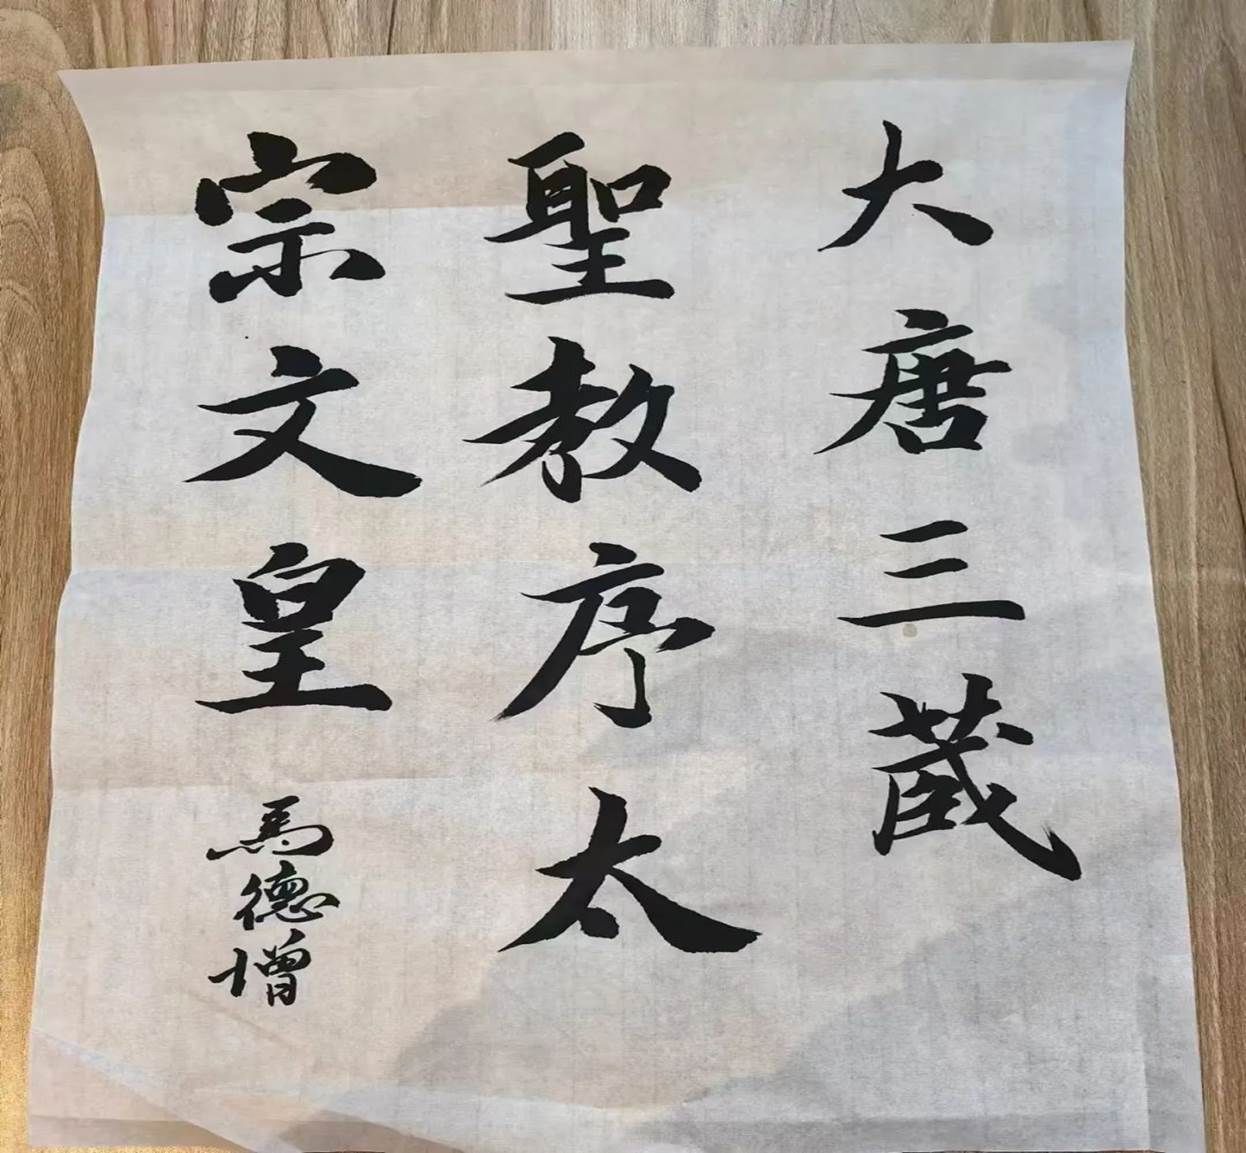 大唐三蔵
聖教序太
宗文皇
馬德增